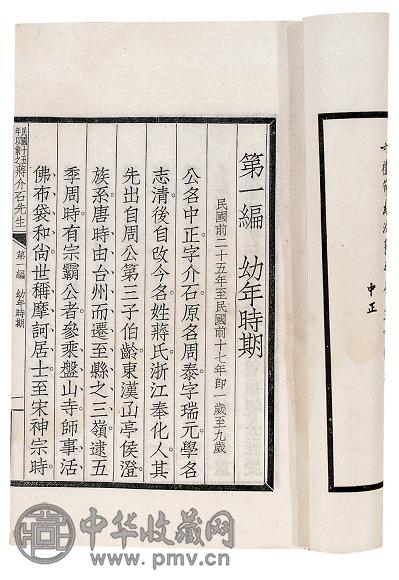 中正
第一編　幼年時期
民國前二十五年至民國前十七年即一歲至九歲
公名中正字介石原名周泰字瑞元學名
志清後自改今名姓蔣氏浙江奉化人其
先出自周公第三子伯齡東漢凾亭侯澄
族系唐時由台州而遷至縣之三嶺逮五
季周時有宗霸公者參乘盤山寺師事活
佛布袋和尚世稱摩訶居士至宋神宗時
民國十五年以前之蔣介石先生
第一編　幼年時期
一
中华收藏网
www.pmv.cn